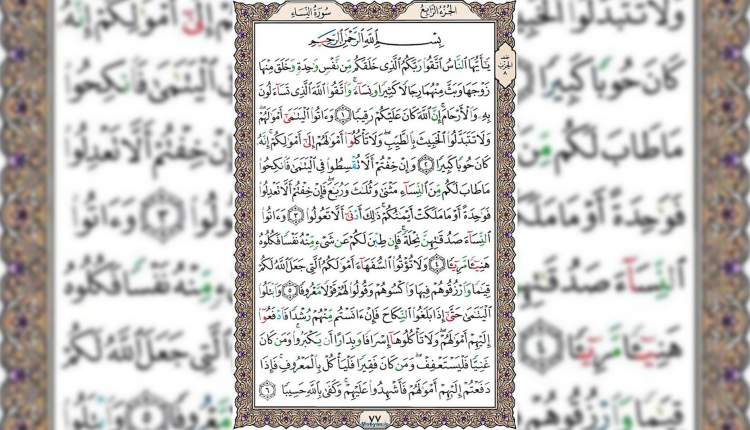 سُورَةُ النِّسَاءِ الجُزْءُ الرَّابِعُ
بِسْمِ اللَّهِ الرَّحْمَٰنِ الرَّحِيمِ
يَا أَيُّهَا النَّاسُ اتَّقُوا رَبَّكُمُ الَّذِي خَلَقَكُمْ مِنْ نَفْسٍ وَاحِدَةٍ وَخَلَقَ مِنْهَا
زَوْجَهَا وَبَثَّ مِنْهُمَا رِجَالًا كَثِيرًا وَنِسَاءً وَاتَّقُوا اللَّهَ الَّذِي تَسَاءَلُونَ
بِهِ وَالْأَرْحَامَ إِنَّ اللَّهَ كَانَ عَلَيْكُمْ رَقِيبًا ١ وَآتُوا الْيَتَامَىٰ أَمْوَالَهُمْ
وَلَا تَتَبَدَّلُوا الْخَبِيثَ بِالطَّيِّبِ وَلَا تَأْكُلُوا أَمْوَالَهُمْ إِلَىٰ أَمْوَالِكُمْ إِنَّهُ
كَانَ حُوبًا كَبِيرًا ٢ وَإِنْ خِفْتُمْ أَلَّا تُقْسِطُوا فِي الْيَتَامَىٰ فَانْكِحُوا
مَا طَابَ لَكُمْ مِنَ النِّسَاءِ مَثْنَىٰ وَثُلَاثَ وَرُبَاعَ فَإِنْ خِفْتُمْ أَلَّا تَعْدِلُوا
فَوَاحِدَةً أَوْ مَا مَلَكَتْ أَيْمَانُكُمْ ذَٰلِكَ أَدْنَىٰ أَلَّا تَعُولُوا ٣ وَآتُوا
النِّسَاءَ صَدُقَاتِهِنَّ نِحْلَةً فَإِنْ طِبْنَ لَكُمْ عَنْ شَيْءٍ مِنْهُ نَفْسًا فَكُلُوهُ
هَنِيئًا مَرِيئًا ٤ وَلَا تُؤْتُوا السُّفَهَاءَ أَمْوَالَكُمُ الَّتِي جَعَلَ اللَّهُ لَكُمْ
قِيَامًا وَارْزُقُوهُمْ فِيهَا وَاكْسُوهُمْ وَقُولُوا لَهُمْ قَوْلًا مَعْرُوفًا ٥ وَابْتَلُوا
الْيَتَامَىٰ حَتَّىٰ إِذَا بَلَغُوا النِّكَاحَ فَإِنْ آنَسْتُمْ مِنْهُمْ رُشْدًا فَادْفَعُوا
إِلَيْهِمْ أَمْوَالَهُمْ وَلَا تَأْكُلُوهَا إِسْرَافًا وَبِدَارًا أَنْ يَكْبَرُوا وَمَنْ كَانَ
غَنِيًّا فَلْيَسْتَعْفِفْ وَمَنْ كَانَ فَقِيرًا فَلْيَأْكُلْ بِالْمَعْرُوفِ فَإِذَا
دَفَعْتُمْ إِلَيْهِمْ أَمْوَالَهُمْ فَأَشْهِدُوا عَلَيْهِمْ وَكَفَىٰ بِاللَّهِ حَسِيبًا ٦
٧٧